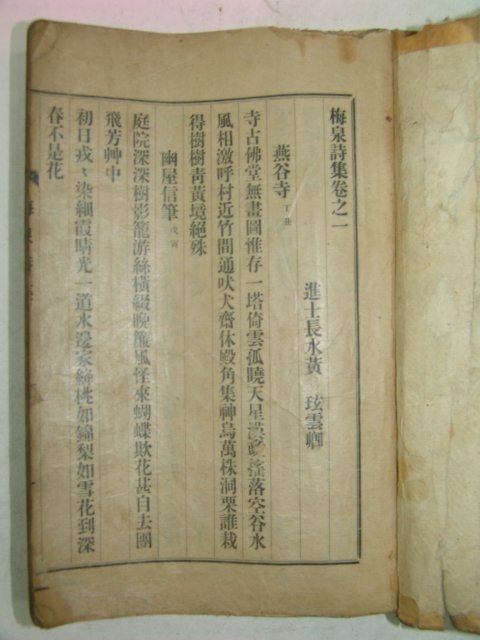 梅泉詩集卷之一
進士長水黃 玹雲卿
燕谷寺 丁丑
寺古佛堂無畫圖惟存一塔倚雲孤曉天星漢 落空谷水
風相激呼村近竹間通吠犬齋休殿角集神烏萬株洞栗誰栽
得樹樹靑黃境絕殊
幽屋信筆 戊寅
庭院深深樹影籠游絲橫綴晩簾風怪來蝴蝶欺花甚自去團
飛芳艸中
初日戎〻染細霞晴光一道水邊家緋桃如錦梨如雪花到深
春不是花